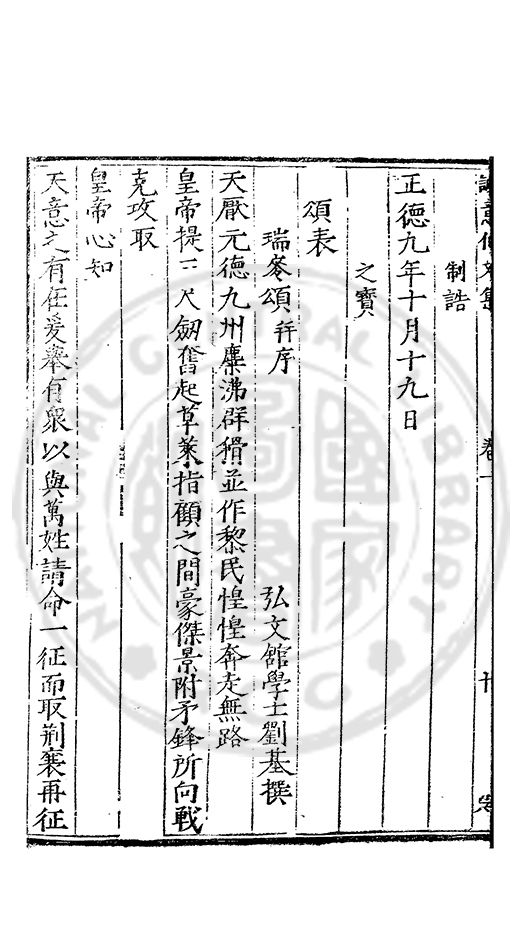 誠意伯文集 卷一
制誥
正德九年十月十九日
之寶
頌表
瑞麥頌 并序 弘文館學士劉基撰
天厭元德九州麋沸群猾並作黎民惶惶奔走無路
皇帝提三尺劒奮起草萊指顧之間豪傑景附矛鋒所向戰
克攻取
皇帝心知
天意之有在爰舉有衆以與萬姓請命一征而取荆襄再征